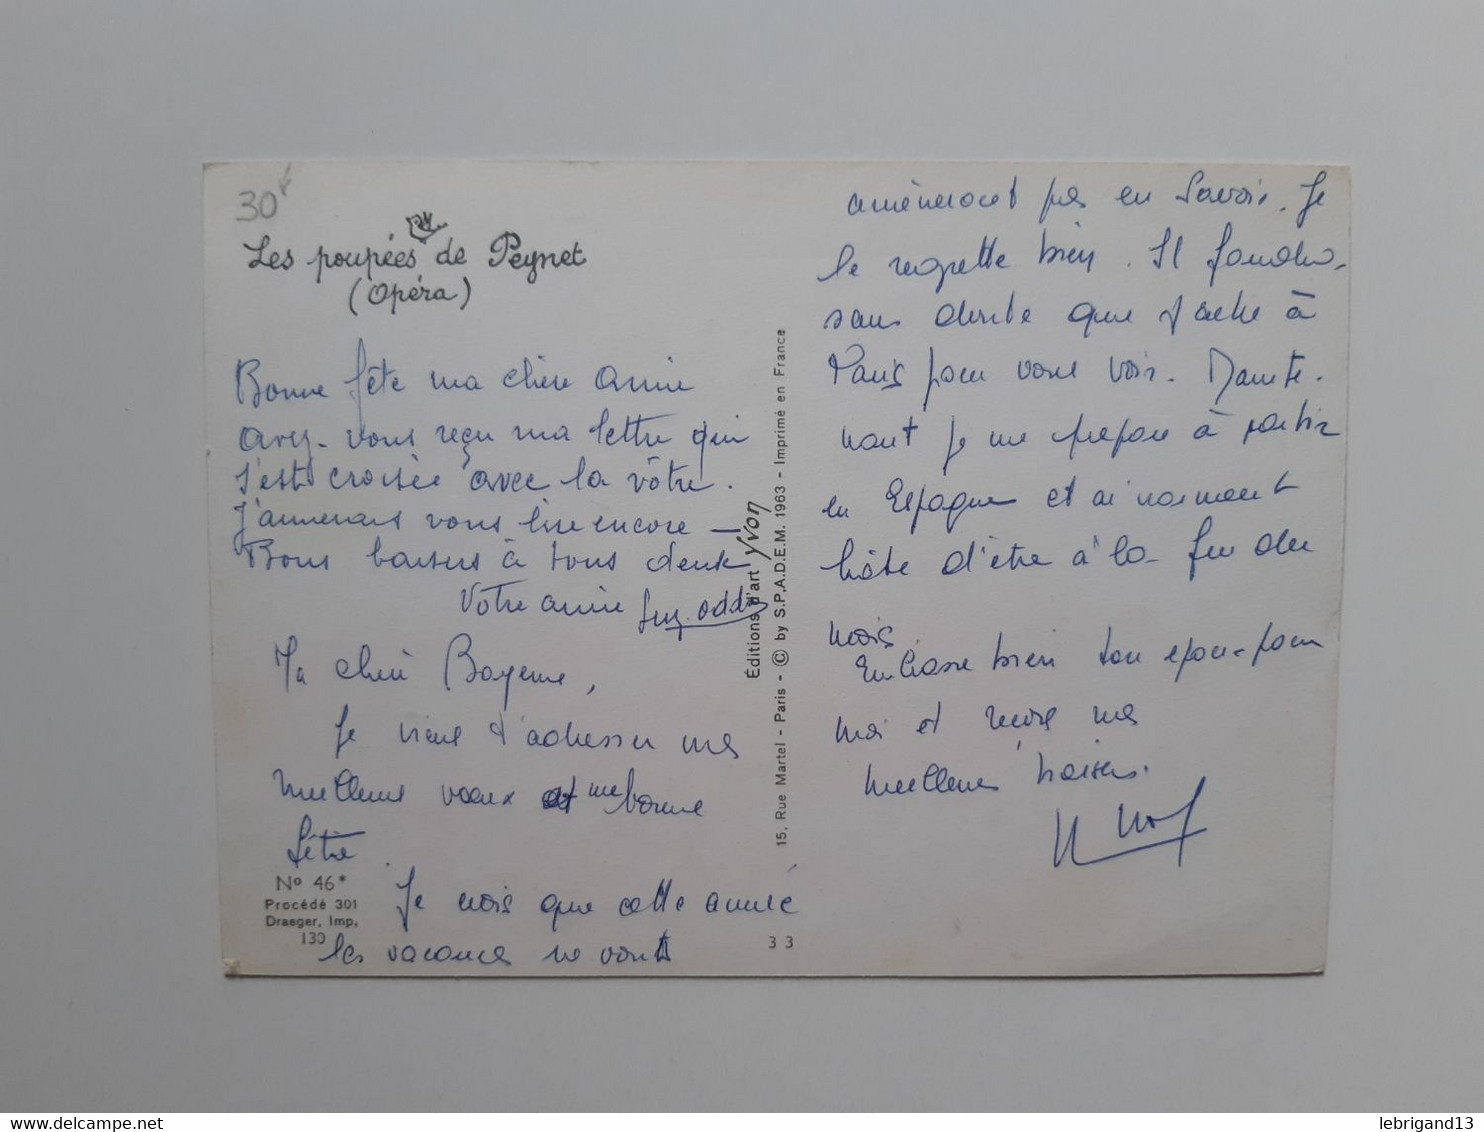 30
Les poupées de Peynet
(Opéra)
Bonne fête ma chère amie
avez-vous reçu ma lettre qui
s'est croisée avec la vôtre.
J'aimerais vous lire encore —
Bons baisers à tous deux
Votre amie
Ma chère
Je viens t'adresser mes
meilleurs vœux et une bonne
fête.
Je crois que cette année
les vacances ne vont
Nº 46*
Procédé 301
Draeger, Imp.
130
33
Éditions d'art Yvon
15, Rue Martel - Paris - © by S.P.A.D.E.M. 1963 - Imprimé en France
amèneront pas en Savoie. Je
le regrette bien. Il faudra
sans doute que j'aille à
Paris pour vous voir. Mainte-
nant je me prépare à partir
en Espagne et ai
hâte d'être à la fin du
mois.
Embrasse bien ton époux pour
moi et reçois mes
meilleurs baisers.
lebrigand13